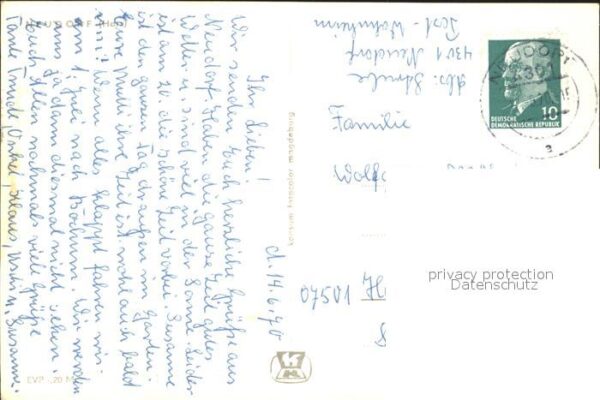 NEUDORF (Harz)
d. 14.6.70
Ihr Lieben!
Wir senden Euch herzliche Grüße aus
Neudorf. Haben die ganze Zeit gutes
Wetter u. sind viel in der Sonne. Leider
ist am 20. die schöne Zeit vorbei. Susanne
ist den ganzen Tag draußen im Garten.
Eure Mutti ihre Zeit ist wohl auch bald
um. Wenn alles klappt fahren wir
am 1. Juli nach Bochum. Wir werden
uns ja dann diesmal nicht sehen.
Euch Allen nochmals viele Grüße
Tante Trude, Onkel Klaus, u. Susanne.
EVP -,20 M
konsum fotocolor magdeburg
Abs. Schulze
4301 Neudorf
Post-Wohnheim
Familie
Wolf
07501
DEUTSCHE
DEMOKRATISCHE REPUBLIK
10
NEUDORF
4301
a
privacy protection
Datenschutz